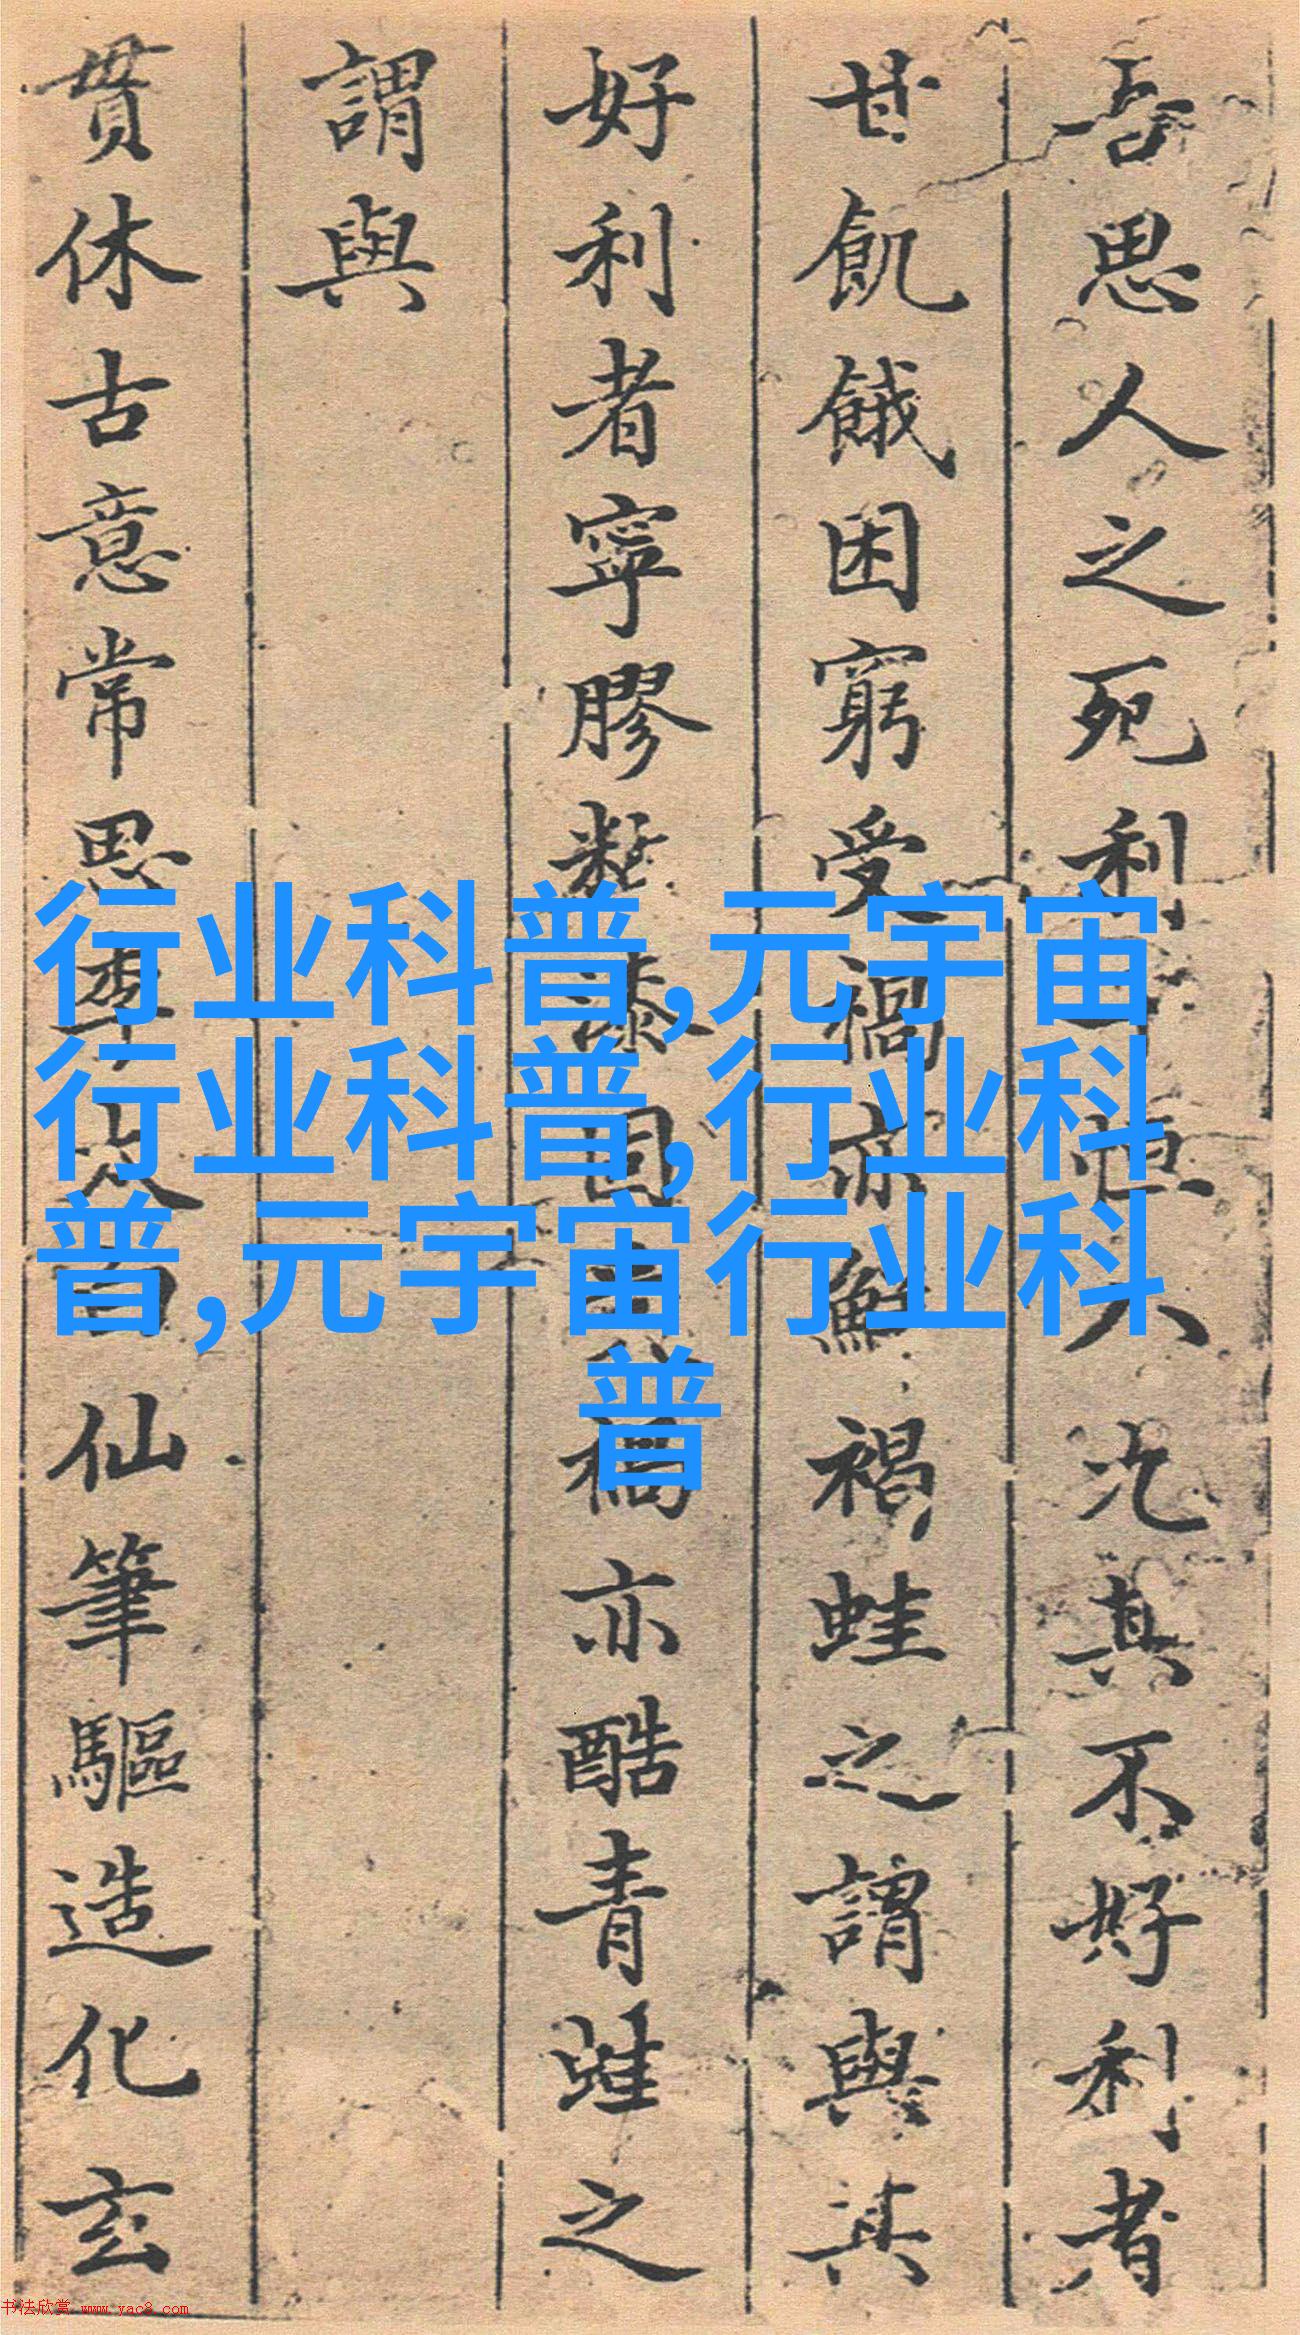 行业科普,元宇宙
行业科普,行业科
普,元宇宙行业科
普
吾思人之死利恒人况其不好利者
甘飢餓困窮受禍亦鮮褐蛙之謂與其
好利者寧膠漆固禍亦酷青蛙之
謂與
貫休古意常思李太白仙筆驅造化玄
书法欣赏 www.yac8.com